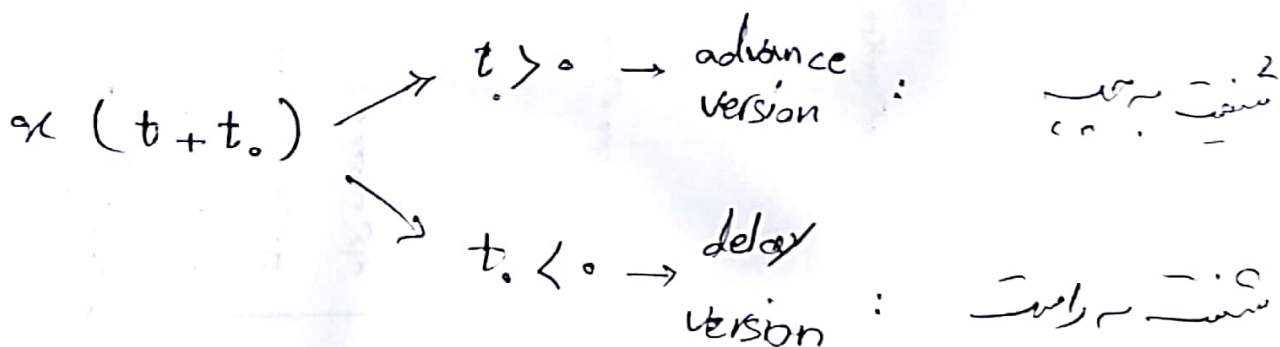 x (t + t₀)
t₀ > 0 → advance version : شیفت به چپ
t₀ < 0 → delay version : شیفت به راست